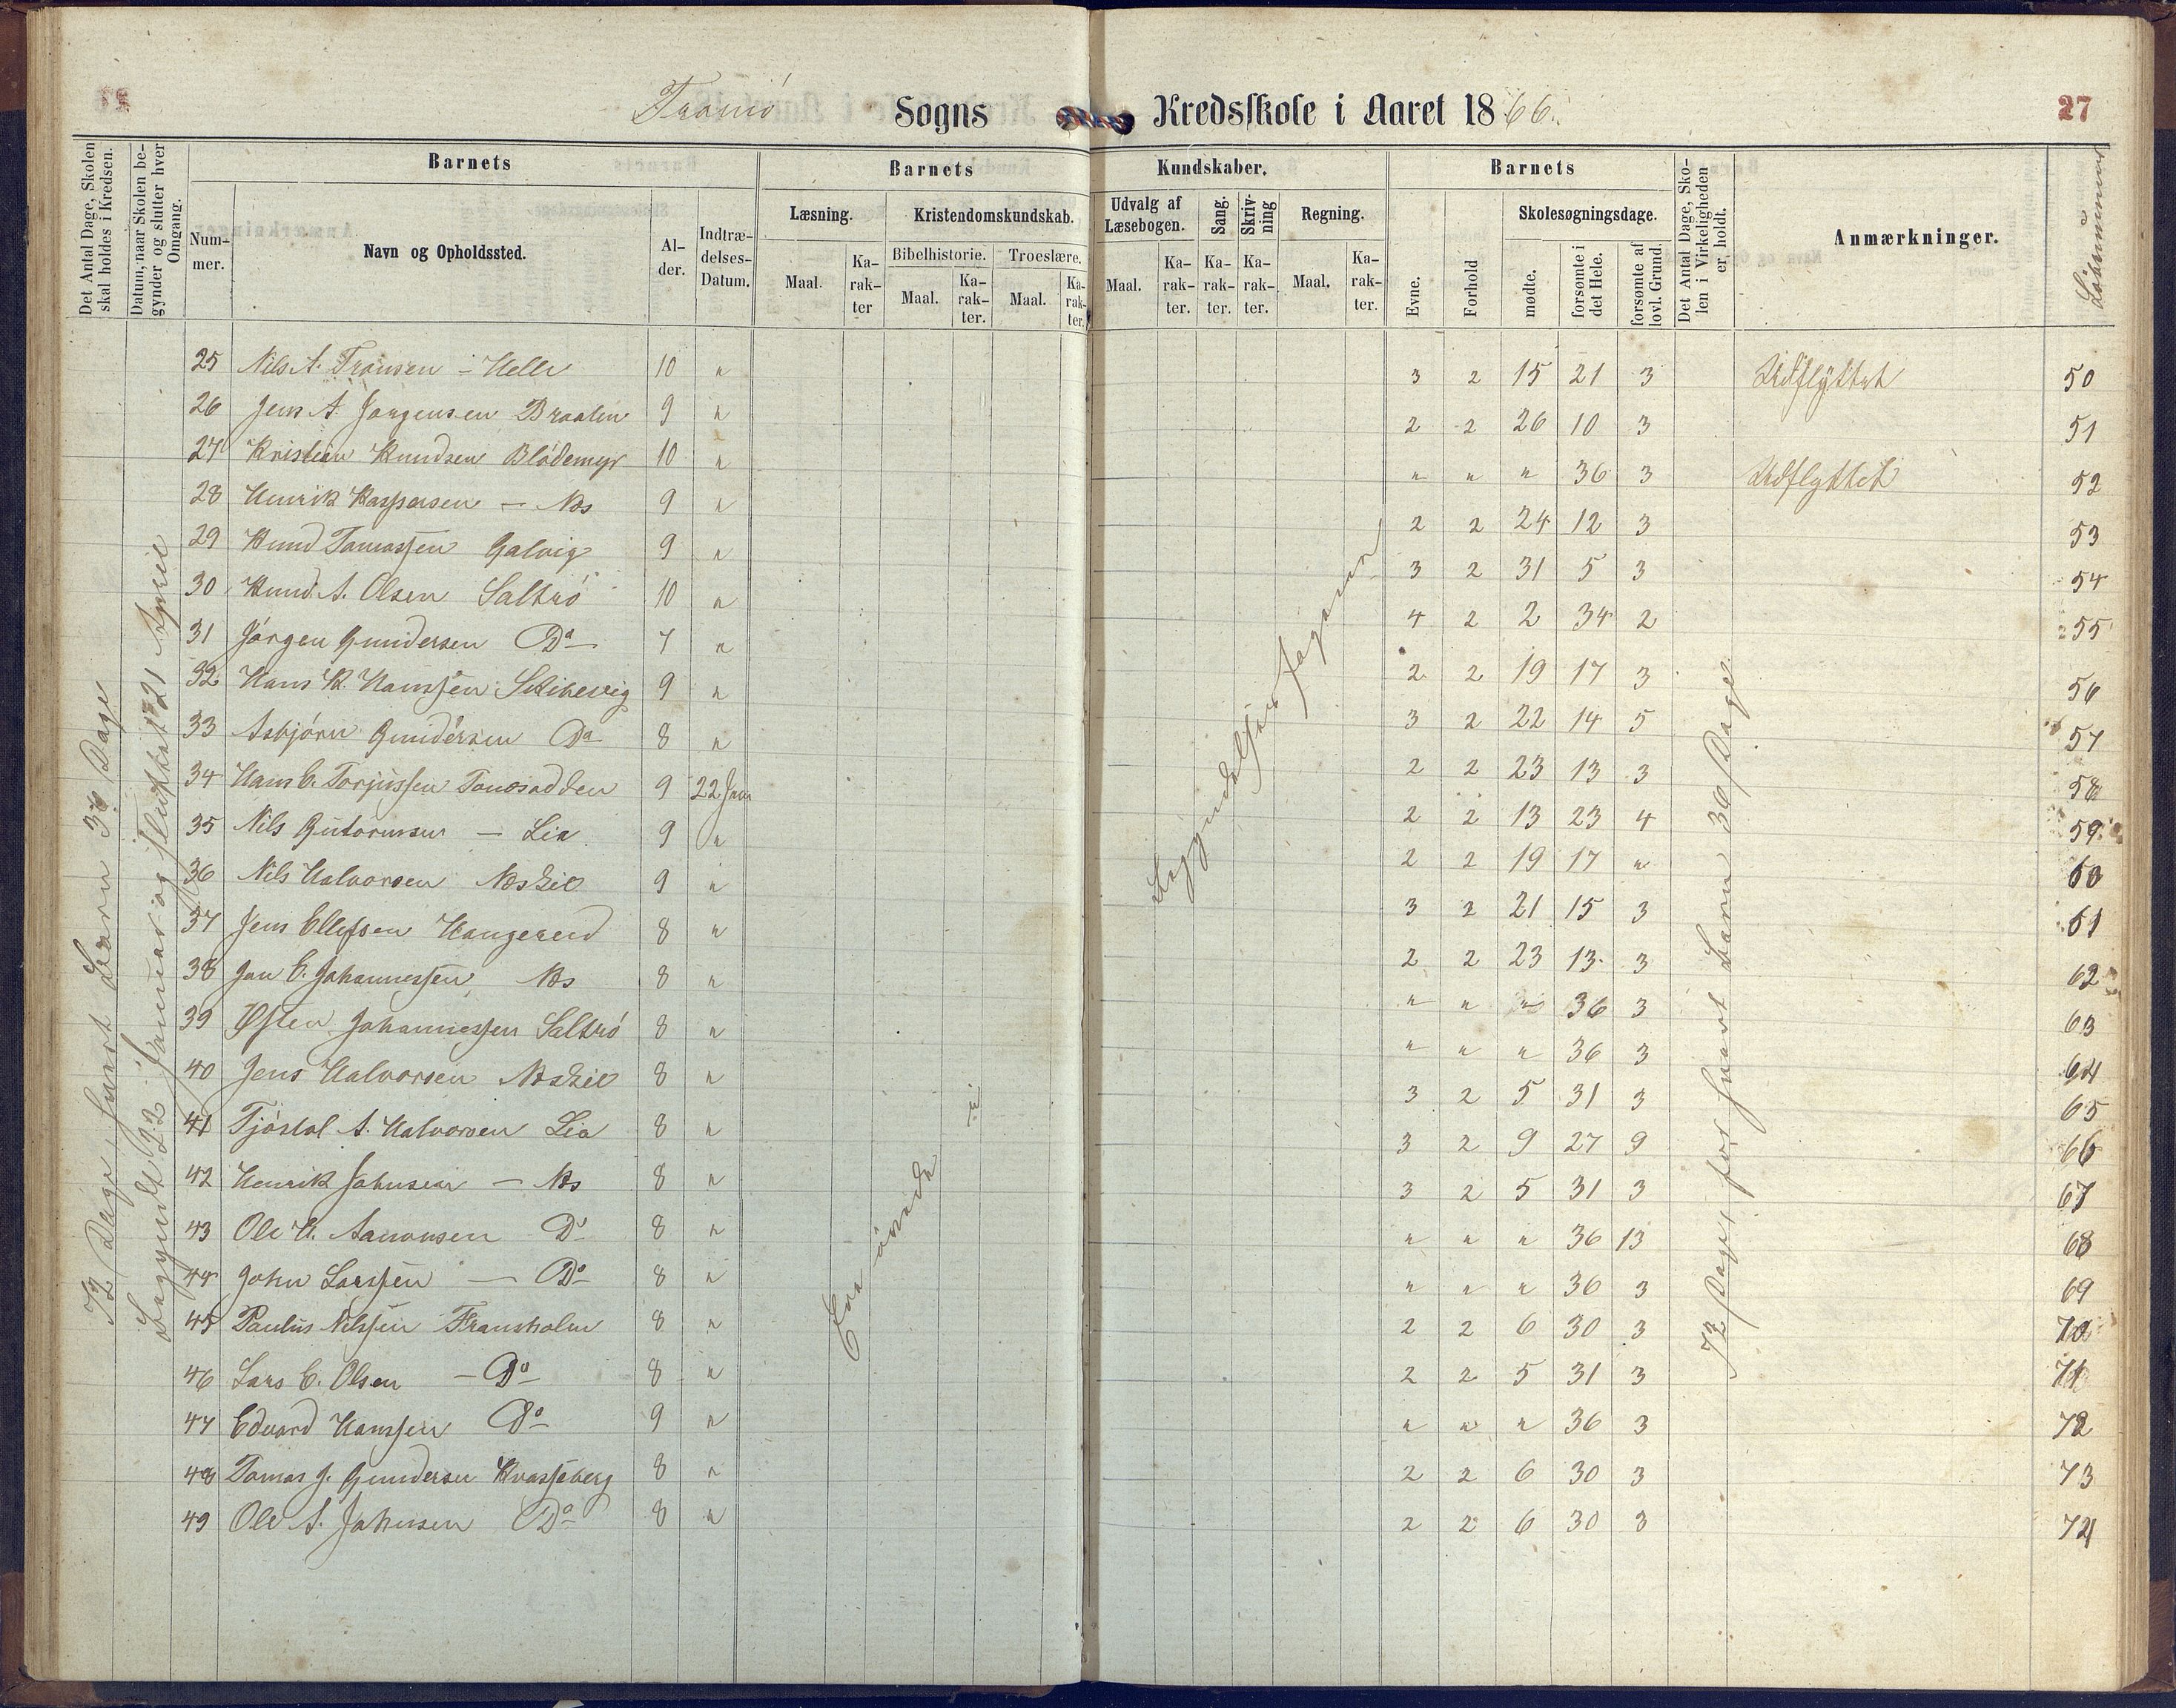 Tromö Sogns Kredsskole i Aaret 1866.
27
Det Antal Dage, Skolen skal holdes i Kredsen.
Datum, naar Skolen begynder og slutter hver Omgang.
Barnets
Nummer.
Navn og Opholdssted.
Alder.
Indtrædelses-Datum.
Barnets Kundskaber.
Læsning.
Maal.
Karakter
Kristendomskundskab.
Bibelhistorie.
Maal.
Karakter.
Troeslære.
Maal.
Karakter.
Udvalg af Læsebogen.
Maal.
Karakter.
Sang.
Karakter.
Skrivning
Karakter.
Regning.
Maal.
Karakter.
Barnets
Evne.
Forhold
Skolesøgningsdage.
mødte.
forsømte i det Hele.
forsømte af lovl. Grund.
Det Antal Dage, Skolen i Virkeligheden er holdt.
Anmærkninger.
Löbenummer
72 Dage, hvert Barn 36 Dage
Begyndt 22 Januar og sluttet 21 April
25 Nils A. Tronsen – Helle 10 " 3 2 15 21 3 Udflyttet 50
26 Jens A. Jörgensen Braaten 9 " 2 2 26 10 3 51
27 Kristian Knudsen Blödemyr 10 " " " " 36 3 Udflyttet 52
28 Henrik Kaspersen – Næs 9 " 2 2 24 12 3 53
29 Knud Tomassen Galvig 9 " 3 2 31 5 3 54
30 Knud A. Olsen Saltrö 10 " 4 2 2 34 2 55
31 Jörgen Gundersen Do 7 " 2 2 19 17 3 56
32 Hans K. Hanssen Skibevig 9 " 3 2 22 14 5 57
33 Asbjörn Gundersen Do 8 " 2 2 23 13 3 58
34 Hans C. Torjussen 9 22 Jan 2 2 13 23 4 59
35 Nils Gutormsen – Lia 9 " 2 2 19 17 " 60
36 Nils Halvorsen Næskil 9 " 3 2 21 15 3 61
37 Jens Ellefsen Haugereid 8 " 2 2 23 13 3 62
38 Jan C. Johannessen Næs 8 " " " " 36 3 63
39 Østen Johannessen Saltrö 8 " " " " 36 3 64
40 Jens Halvorsen Næskil 8 " 3 2 5 31 3 65
41 Tjöstol A. Halvorsen Lia 8 " 3 2 9 27 9 66
42 Henrik Johnsen – Næs 8 " 3 2 5 31 3 67
43 Ole H. Aanonsen Do 8 " " " " 36 13 68
44 John Larssen — Do 8 " " " " 36 3 69
45 Paulus Nilssen Fransholm 8 " 2 2 6 30 3 70
46 Lars C. Olsen – Do 8 " 2 2 5 31 3 71
47 Edvard Hanssen Do 9 " " " " 36 3 72
48 Tomas J. Gundersen Kvasseberg 8 " 2 2 6 30 3 73
49 Ole A. Johnsen Do 8 " 2 2 6 30 3 74
72 Dage, for hvert Barn 36 Dage